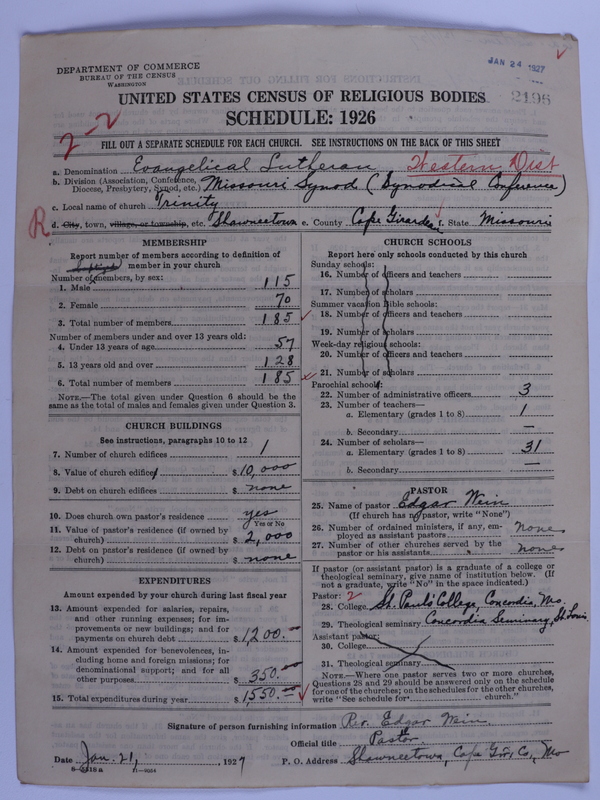 DEPARTMENT OF COMMERCE
BUREAU OF THE CENSUS
WASHINGTON
JAN 24 1927
2196
UNITED STATES CENSUS OF RELIGIOUS BODIES
SCHEDULE: 1926
2-2
FILL OUT A SEPARATE SCHEDULE FOR EACH CHURCH. SEE INSTRUCTIONS ON THE BACK OF THIS SHEET
a. Denomination Evangelical Lutheran Western Dist
b. Division (Association, Conference, Diocese, Presbytery, Synod, etc.) Missouri Synod (Synodical Conference)
c. Local name of church Trinity
R
d. City, town, village, or township, etc. Shawneetown e. County Cape Girardeau f. State Missouri
MEMBERSHIP
Report number of members according to definition of
member in your church
Number of members, by sex:
1. Male 115
2. Female 70
3. Total number of members 185
Number of members under and over 13 years old:
4. Under 13 years of age 57
5. 13 years old and over 128
6. Total number of members 185
NOTE.—The total given under Question 6 should be
same as the total of males and females given under Question 3.
CHURCH BUILDINGS
See instructions, paragraphs 10 to 12
7. Number of church edifices 1
8. Value of church edifice $10,000
9. Debt on church edifices $ none
10. Does church own pastor's residence yes
Yes or No
11. Value of pastor's residence (if owned by
church) $ 2,000
12. Debt on pastor's residence (if owned by
church) $ none
EXPENDITURES
Amount expended by your church during last fiscal year
13. Amount expended for salaries, repairs,
and other running expenses; for im-
provements or new buildings; and for
payments on church debt $1,200.00
14. Amount expended for benevolences, in-
cluding home and foreign missions; for
denominational support; and for all
other purposes $ 350.00
15. Total expenditures during year $1,550.00
CHURCH SCHOOLS
Report here only schools conducted by this church
Sunday schools:
16. Number of officers and teachers
17. Number of scholars
Summer vacation Bible schools:
18. Number of officers and teachers
19. Number of scholars
Week-day religious schools:
20. Number of officers and teachers
21. Number of scholars
Parochial schools:
22. Number of administrative officers 3
23. Number of teachers—
a. Elementary (grades 1 to 8) 1
b. Secondary —
24. Number of scholars—
a. Elementary (grades 1 to 8) 31
b. Secondary —
PASTOR
25. Name of pastor Edgar Wein
(If church has no pastor, write "None")
26. Number of ordained ministers, if any, em-
ployed as assistant pastors none
27. Number of other churches served by the
pastor or his assistants none
If pastor (or assistant pastor) is a graduate of a college or
theological seminary, give name of institution below. (If
not a graduate, write "No" in the space indicated.)
Pastor: 2
28. College St. Paul's College, Concordia, Mo.
29. Theological seminary Concordia Seminary, St. Louis
Assistant pastor:
30. College
31. Theological seminary
NOTE.—Where one pastor serves two or more churches,
Questions 28 and 29 should be answered only on the schedule
for one of the churches; on the schedules for the other churches,
write "See schedule for church."
Signature of person furnishing information Rev. Edgar Wein
Official title Pastor
Date Jan. 21, 1927 P. O. Address Shawneetown, Cape Gir. Co., Mo